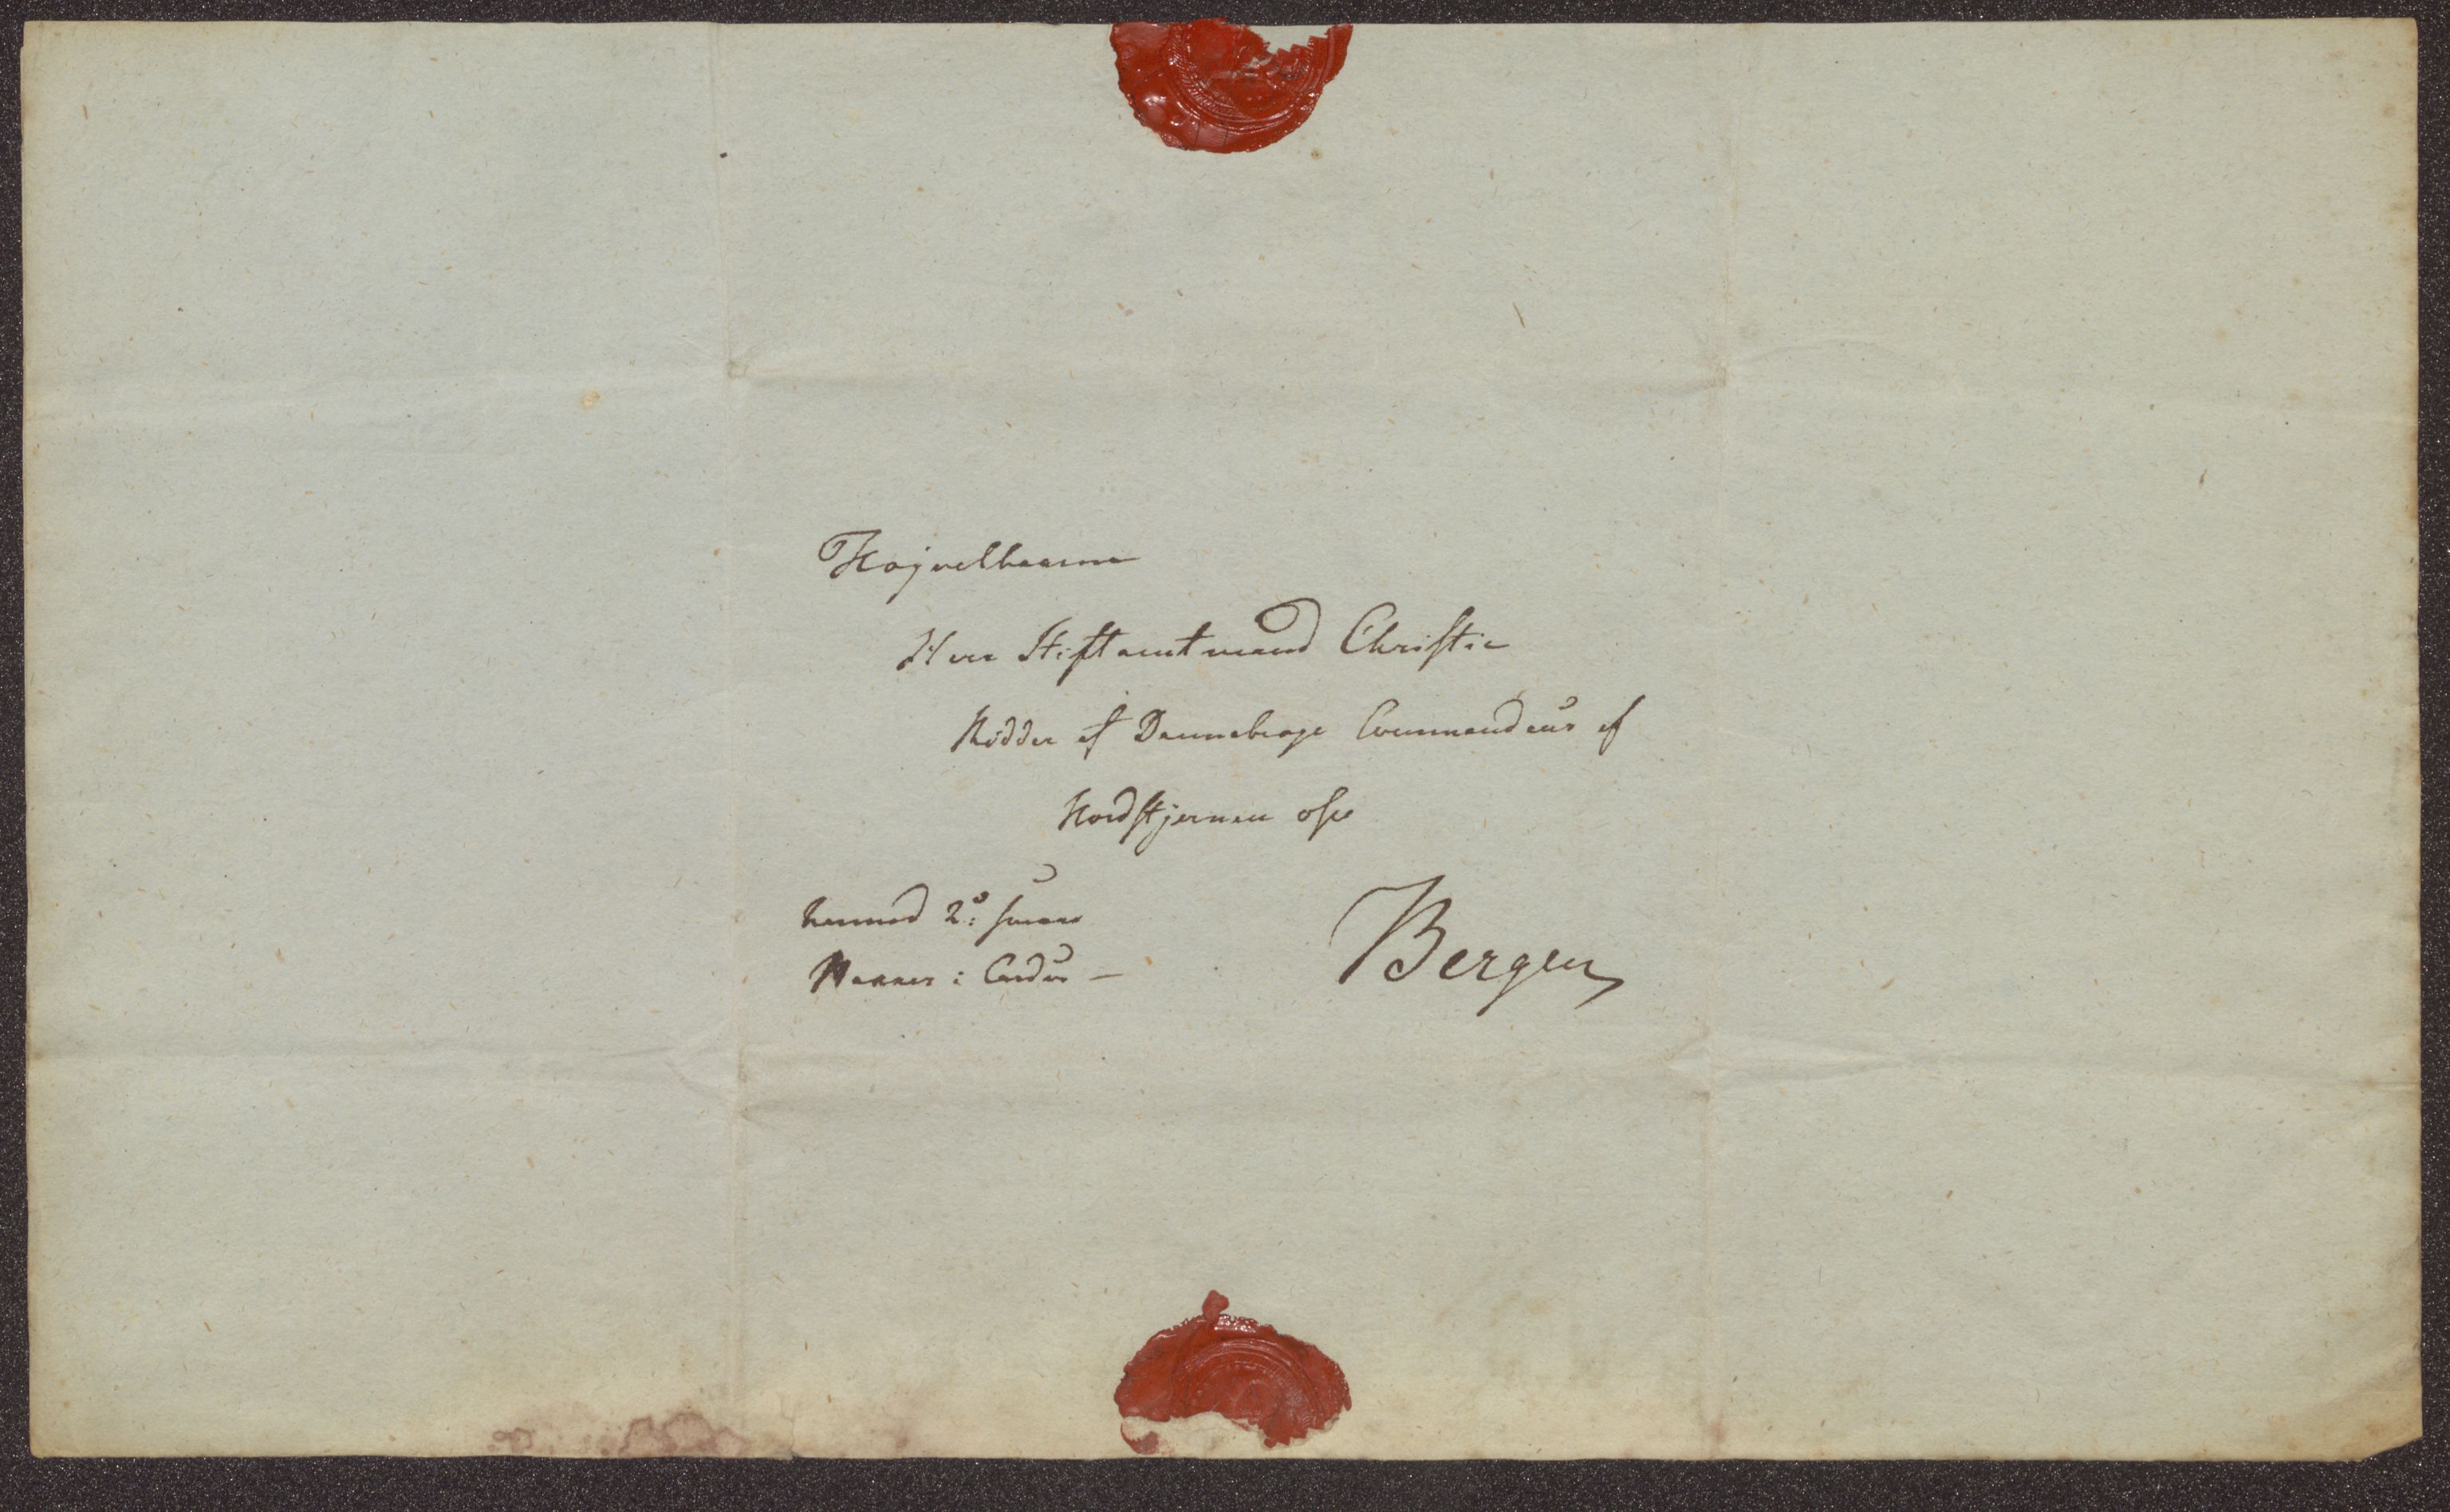 Højvelbaarne
Herr Stiftamtmand Christie
Ridder af Dannebroge Commandeur af
Nordstjernen ofv
hermed 2de smaae
Pakker i Couvert —
Bergen